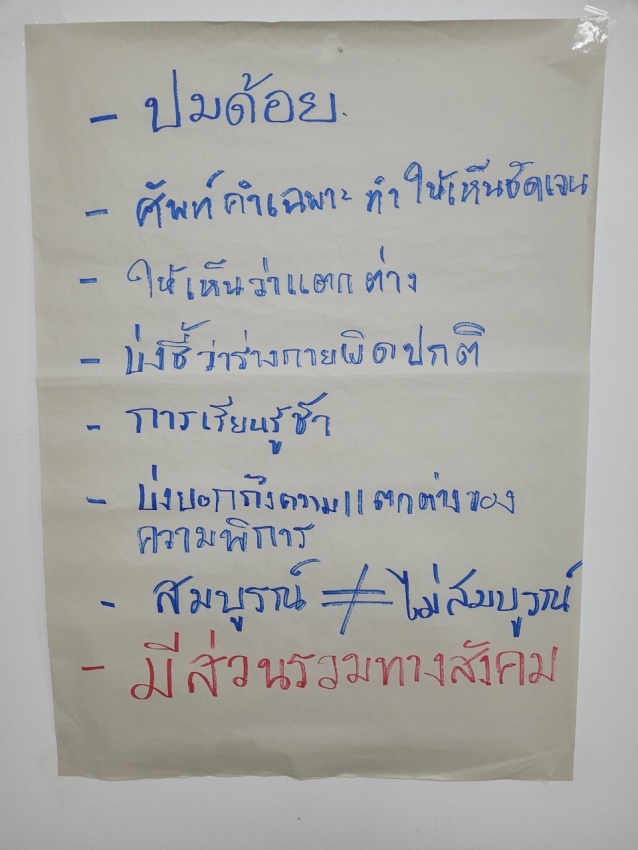 - ปมด้อย.
- ศัพท์คำเฉพาะ ทำให้เห็นชัดเจน
- ให้เห็นว่าแตกต่าง
- บ่งชี้ว่าร่างกายผิดปกติ
- การเรียนรู้ช้า
- บ่งบอกถึงความแตกต่างของ
ความพิการ
- สมบูรณ์ ≠ ไม่สมบูรณ์
- มีส่วนรวมทางสังคม